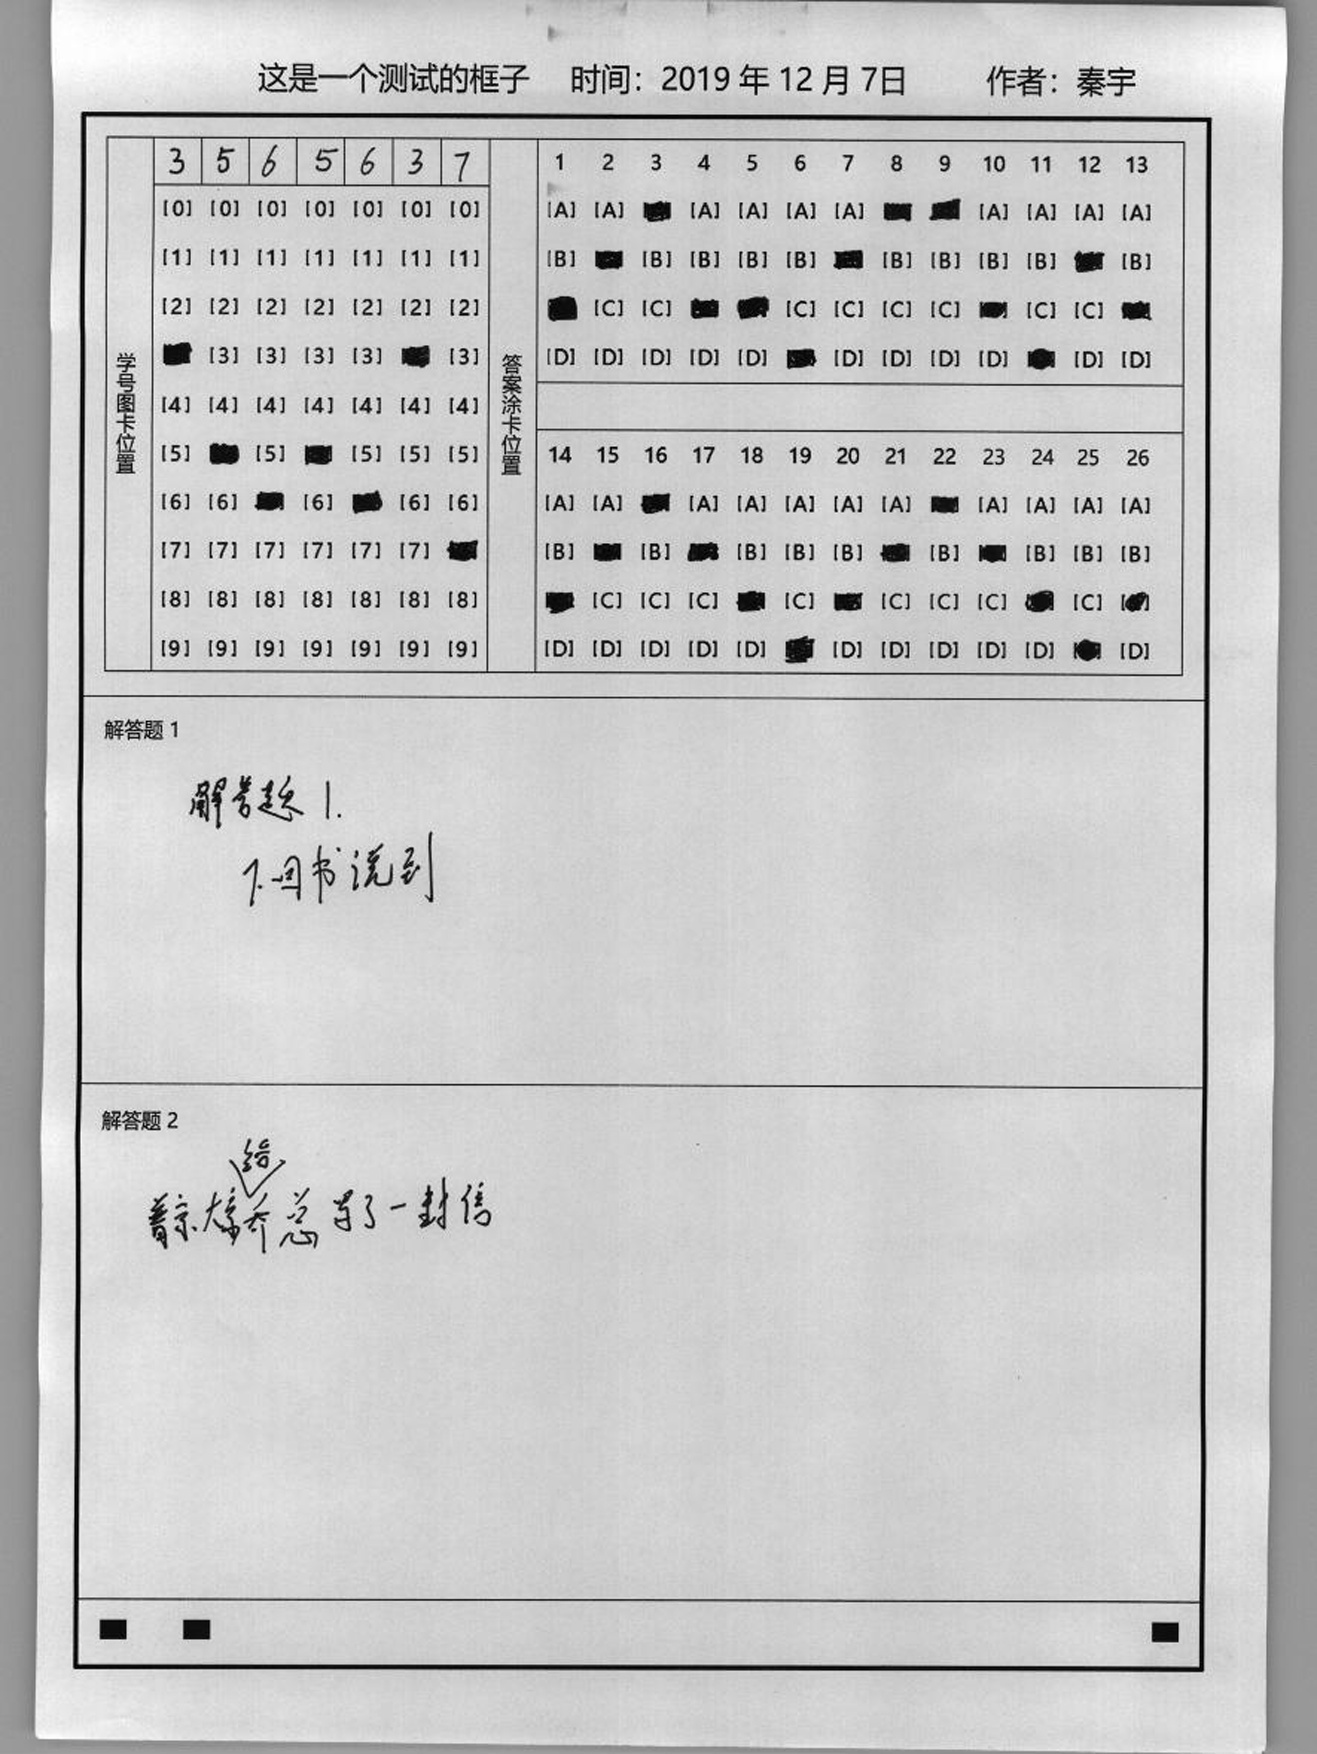 这是一个测试的框子 时间：2019 年 12 月 7日 作者：秦宇
学号图卡位置
3 5 6 5 6 3 7
[0] [0] [0] [0] [0] [0] [0]
[1] [1] [1] [1] [1] [1] [1]
[2] [2] [2] [2] [2] [2] [2]
[3] [3] [3] [3] [3]
[4] [4] [4] [4] [4] [4] [4]
[5] [5] [5] [5] [5]
[6] [6] [6] [6] [6]
[7] [7] [7] [7] [7] [7]
[8] [8] [8] [8] [8] [8] [8]
[9] [9] [9] [9] [9] [9] [9]
答案涂卡位置
1 2 3 4 5 6 7 8 9 10 11 12 13
[A] [A] [A] [A] [A] [A] [A] [A] [A] [A]
[B] [B] [B] [B] [B] [B] [B] [B] [B] [B]
[C] [C] [C] [C] [C] [C] [C] [C]
[D] [D] [D] [D] [D] [D] [D] [D] [D] [D] [D]
14 15 16 17 18 19 20 21 22 23 24 25 26
[A] [A] [A] [A] [A] [A] [A] [A] [A] [A] [A]
[B] [B] [B] [B] [B] [B] [B] [B] [B]
[C] [C] [C] [C] [C] [C] [C] [C]
[D] [D] [D] [D] [D] [D] [D] [D] [D] [D] [D]
解答题 1
解答题 1.
1.回书说到
解答题 2
给
总写了一封信